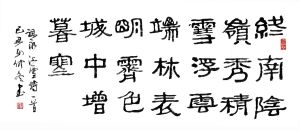 終南陰
嶺秀積
雪浮雲
端林表
明霽色
城中增
暮寒
詩一首